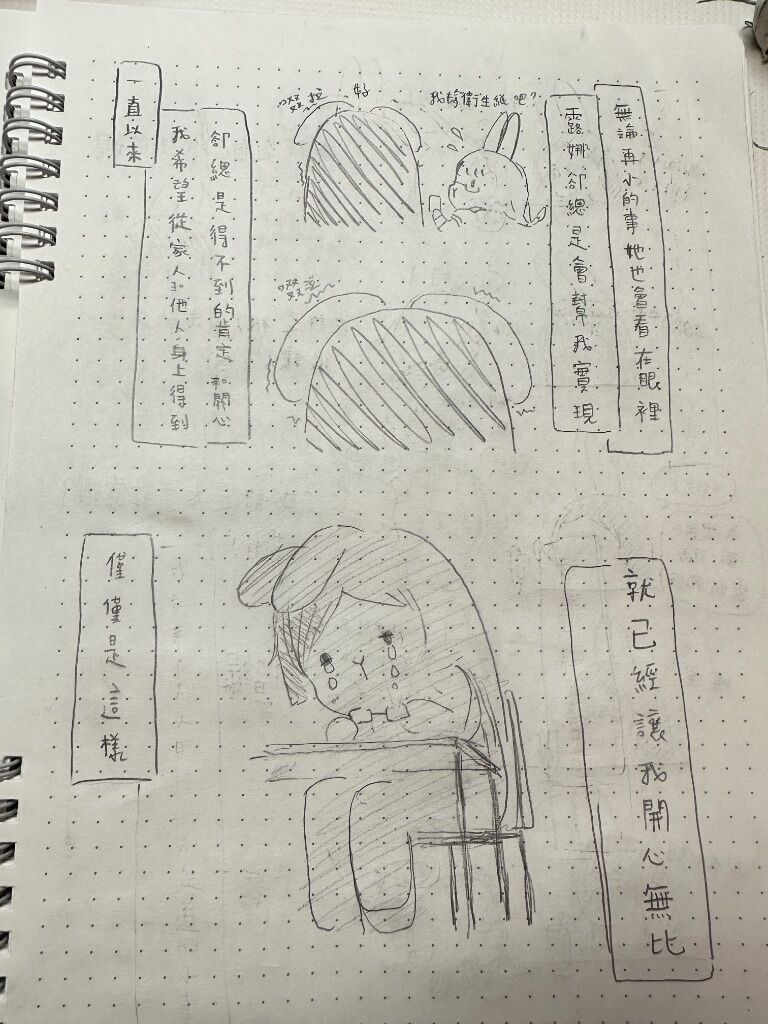 無論再小的事她也會看在眼裡
露娜卻總是會幫我實現
我拿衛生紙吧?
好
啜泣
啜泣
卻總是得不到的肯定和關心
我希望從家人和他人身上得到
一直以來
就已經讓我開心無比
僅僅是這樣